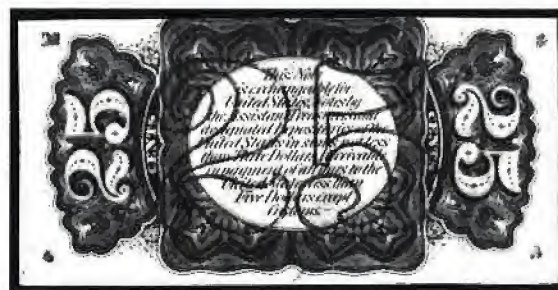 25
CENTS
This Note
is exchangeable for
United States Notes by
the Assistant Treasurers and
designated Depositaries of the
United States in sums not less
than Three Dollars. Receivable
in payment of all dues to the
United States less than
Five Dollars except
Customs.
CENTS
25